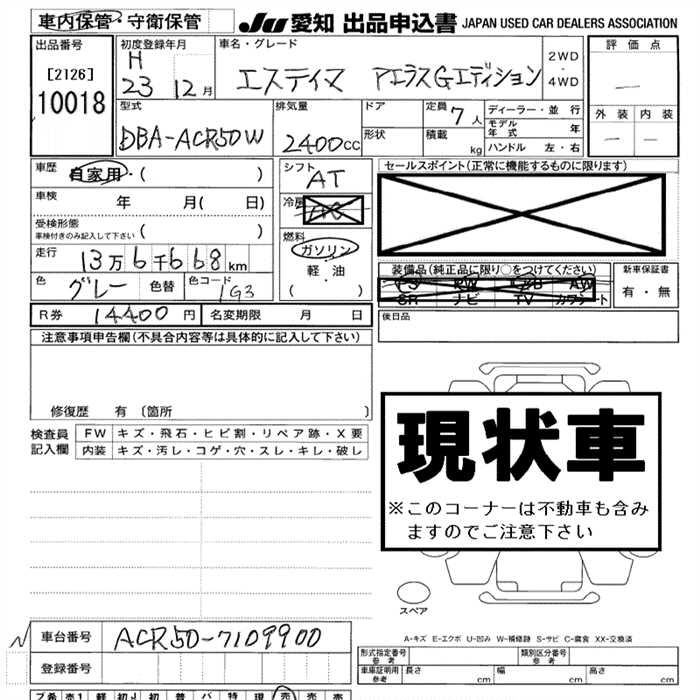 車内保管・守衛保管
JU 愛知 出品申込書 JAPAN USED CAR DEALERS ASSOCIATION
出品番号
[2126]
10018
初度登録年月
H
23 12月
車名・グレード
エスティマ アエラスGエディション
2WD
・
4WD
評価点
—
外装 内装
— —
型式
DBA-ACR50W
排気量
2400cc
ドア
形状
定員 7人
積載 kg
ディーラー・並行
モデル年式 年
ハンドル 左・右
車歴 自家用・( )
車検 年 月( 日)
受検形態
車検付きのみ記入して下さい ( )
走行 13万6千668km
色 グレー 色替 色コード 1G3
シフト
AT
冷房
燃料
ガソリン
・
軽・油
( )
セールスポイント(正常に機能するものに限ります)
装備品(純正品に限り○をつけてください)
PS PW エアB AW
SR ナビ TV カワシート
新車保証書
有・無
R券 14400円 名変期限 月 日
後日品
注意事項申告欄(不具合内容等は具体的に記入して下さい)
修復歴 有 〔箇所 〕
検査員記入欄
FW キズ・飛石・ヒビ割・リペア跡・X要
内装 キズ・汚レ・コゲ・穴・スレ・キレ・破レ
現状車
※このコーナーは不動車も含み
ますのでご注意下さい
スペア
A-キズ E-エクボ U-凹み W-補修跡 S-サビ C-腐食 XX-交換済
N
車台番号 ACR50-7109900
登録番号
形式指定番号 参考
類別区分番号 参考
車庫証明用 参考 長さ cm 幅 cm 高さ cm